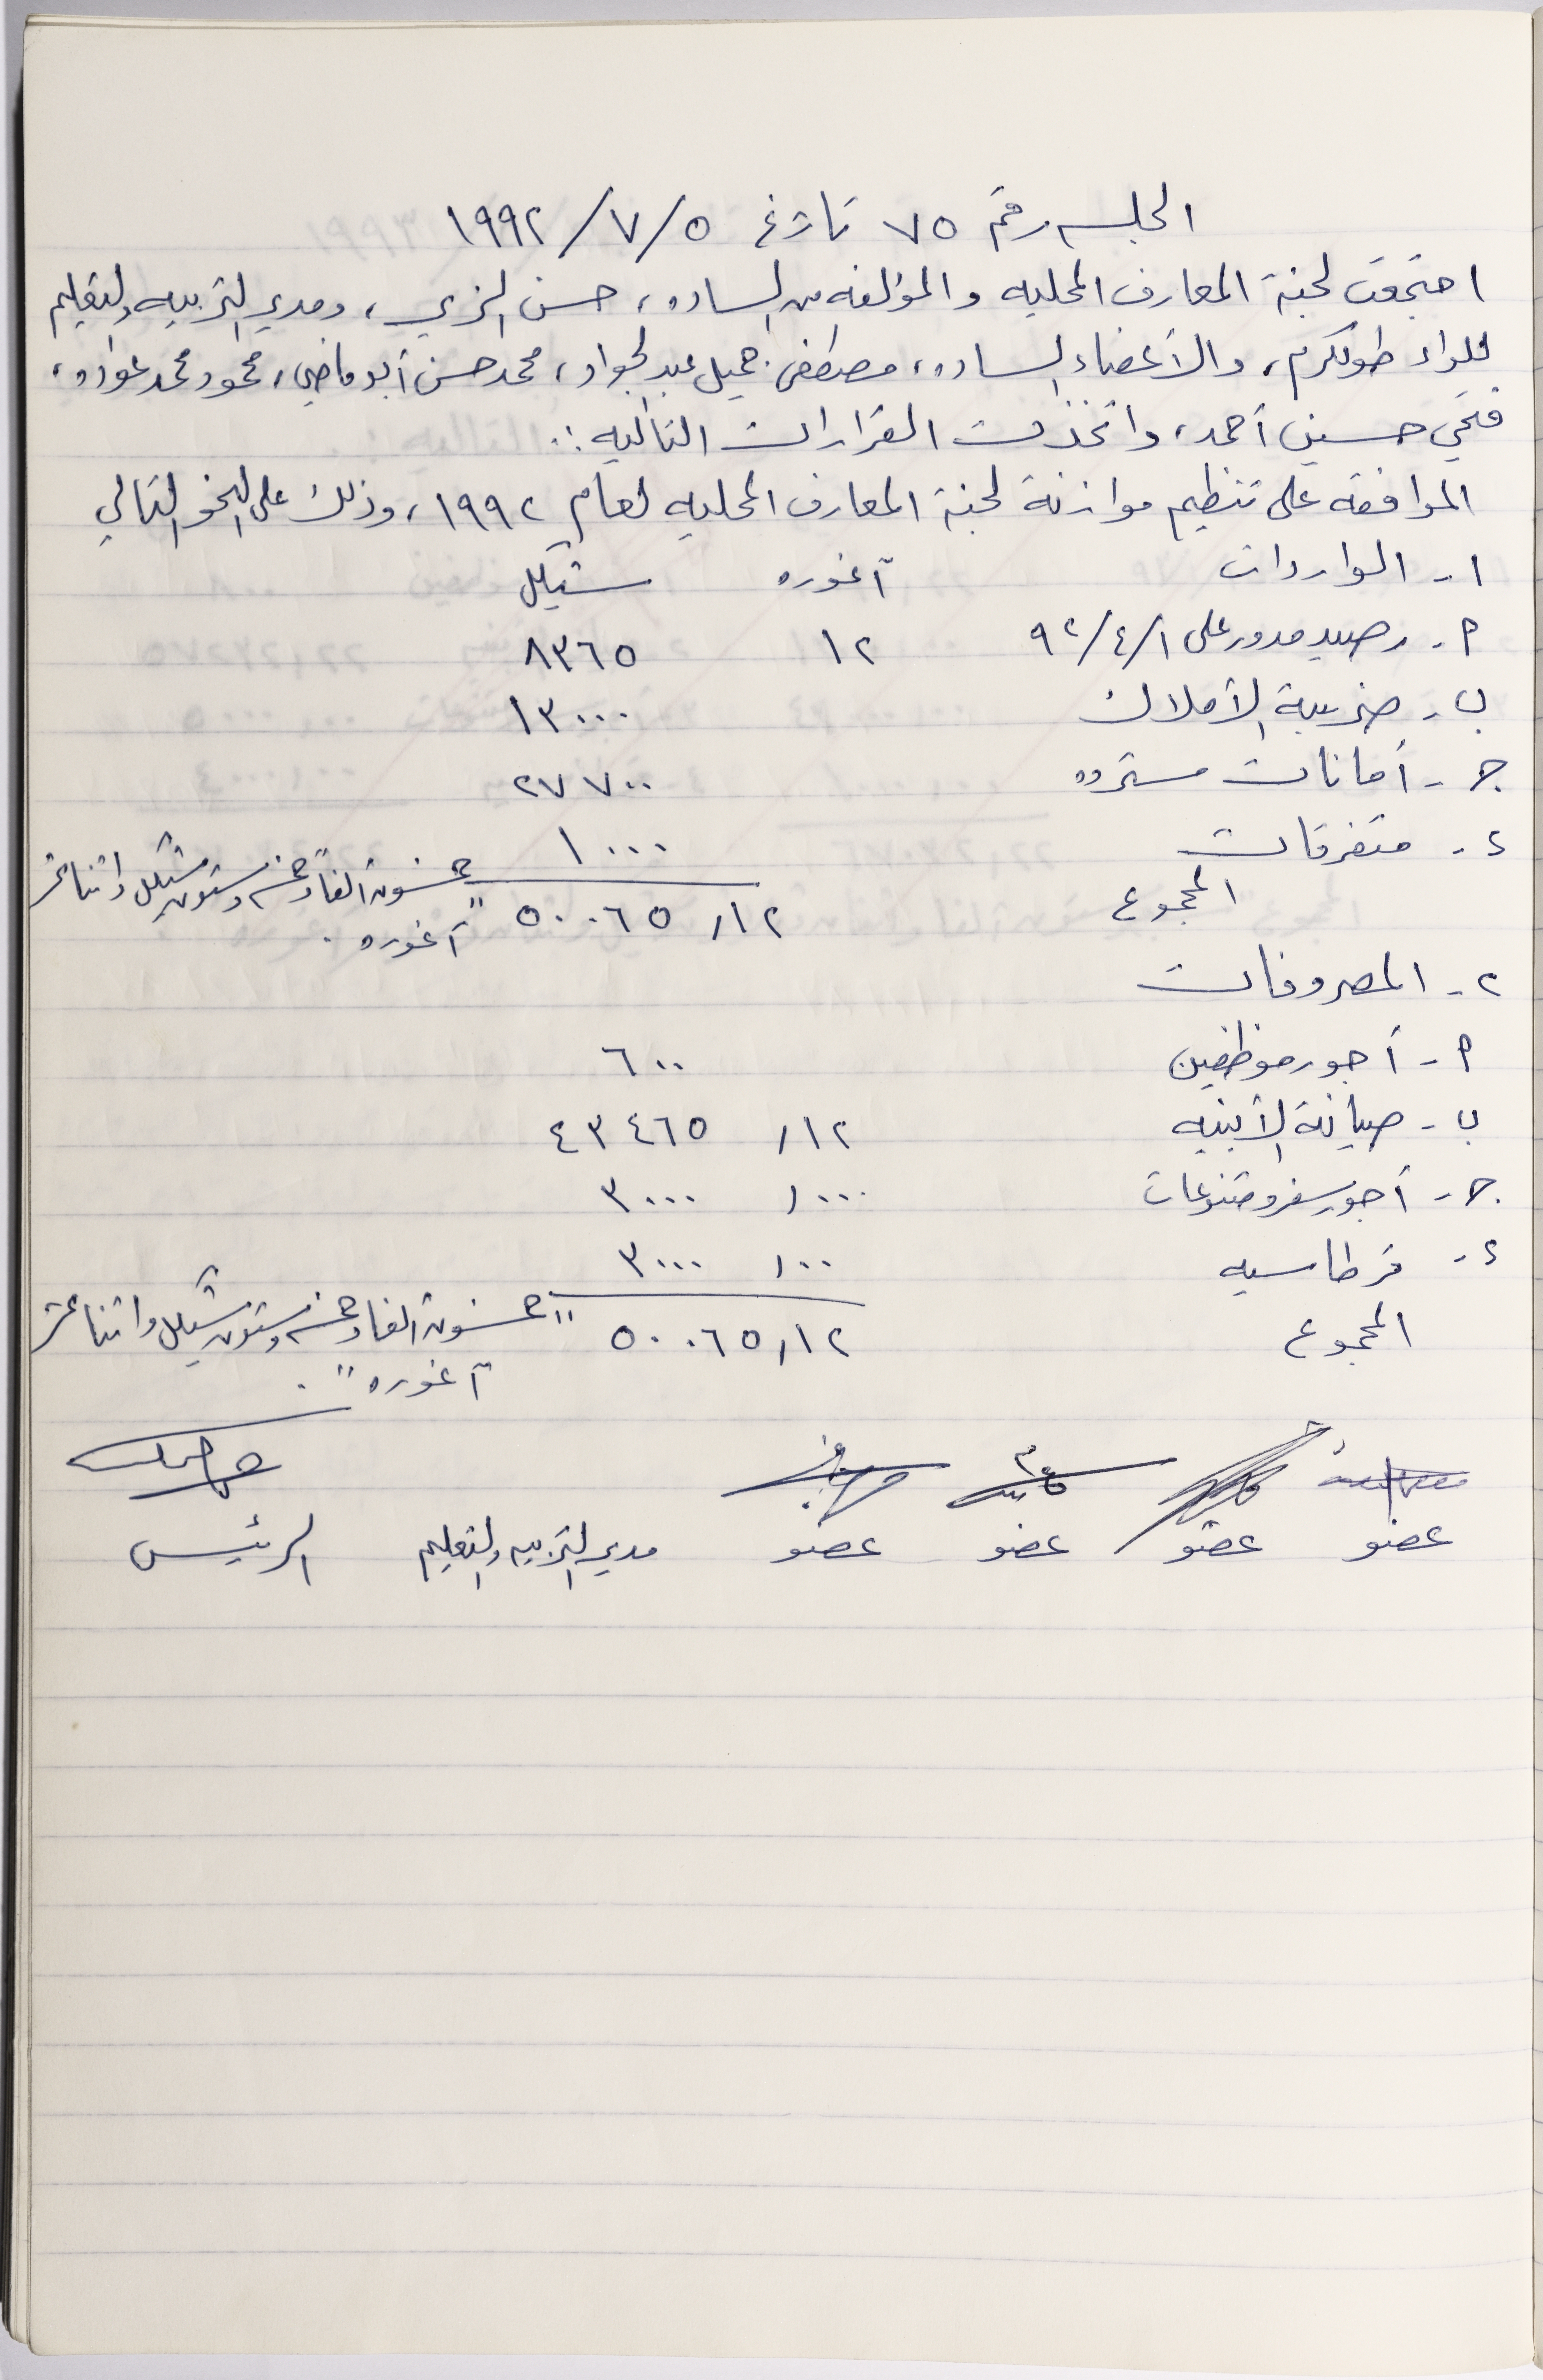 الجلسه رقم ٧٥ تاريخ ٥/٧/١٩٩٢
اجتمعت لجنة المعارف المحليه والمؤلفه من الساده، حسن الزي، ومدير التربيه والتعليم
للواء طولكرم، والأعضاء الساده، مصطفى جميل عبد الجواد، محمد حسن أبو ماضي، محمود محمد عواده،
فتحي حسين أحمد، واتخذت القرارات التاليه :.
الموافقه على تنظيم موازنة لجنة المعارف المحليه لعام ١٩٩٢، وذلك على النحو التالي
١- الواردات آغوره شيكل
أ- رصيد مدور على ٩٢/٤/١ ١٢ ٨٣٦٥
ب- ضريبة الأملاك ١٣٠٠٠
ج- أمانات مسترده ٢٧٧٠٠
د- متفرقات ١٠٠٠
المجموع ٥٠٠٦٥,١٢ "خمسون ألفاً وخمسه وستون شيكل واثنا عشر
آغوره" .
٢- المصروفات
أ- أجور موظفين ٦٠٠
ب- صيانة الأبنيه ١٢, ٤٣٤٦٥
ج- أجور سفر ومتنوعات ٠٠٠, ٣٠٠٠
د- قرطاسيه ٠٠, ٣٠٠٠
المجموع ٥٠٠٦٥,١٢ "خمسون ألفاً وخمسه وستون شيكل واثنا عشر
آغوره" .
عضو عضو عضو عضو مدير التربيه والتعليم الرئيس